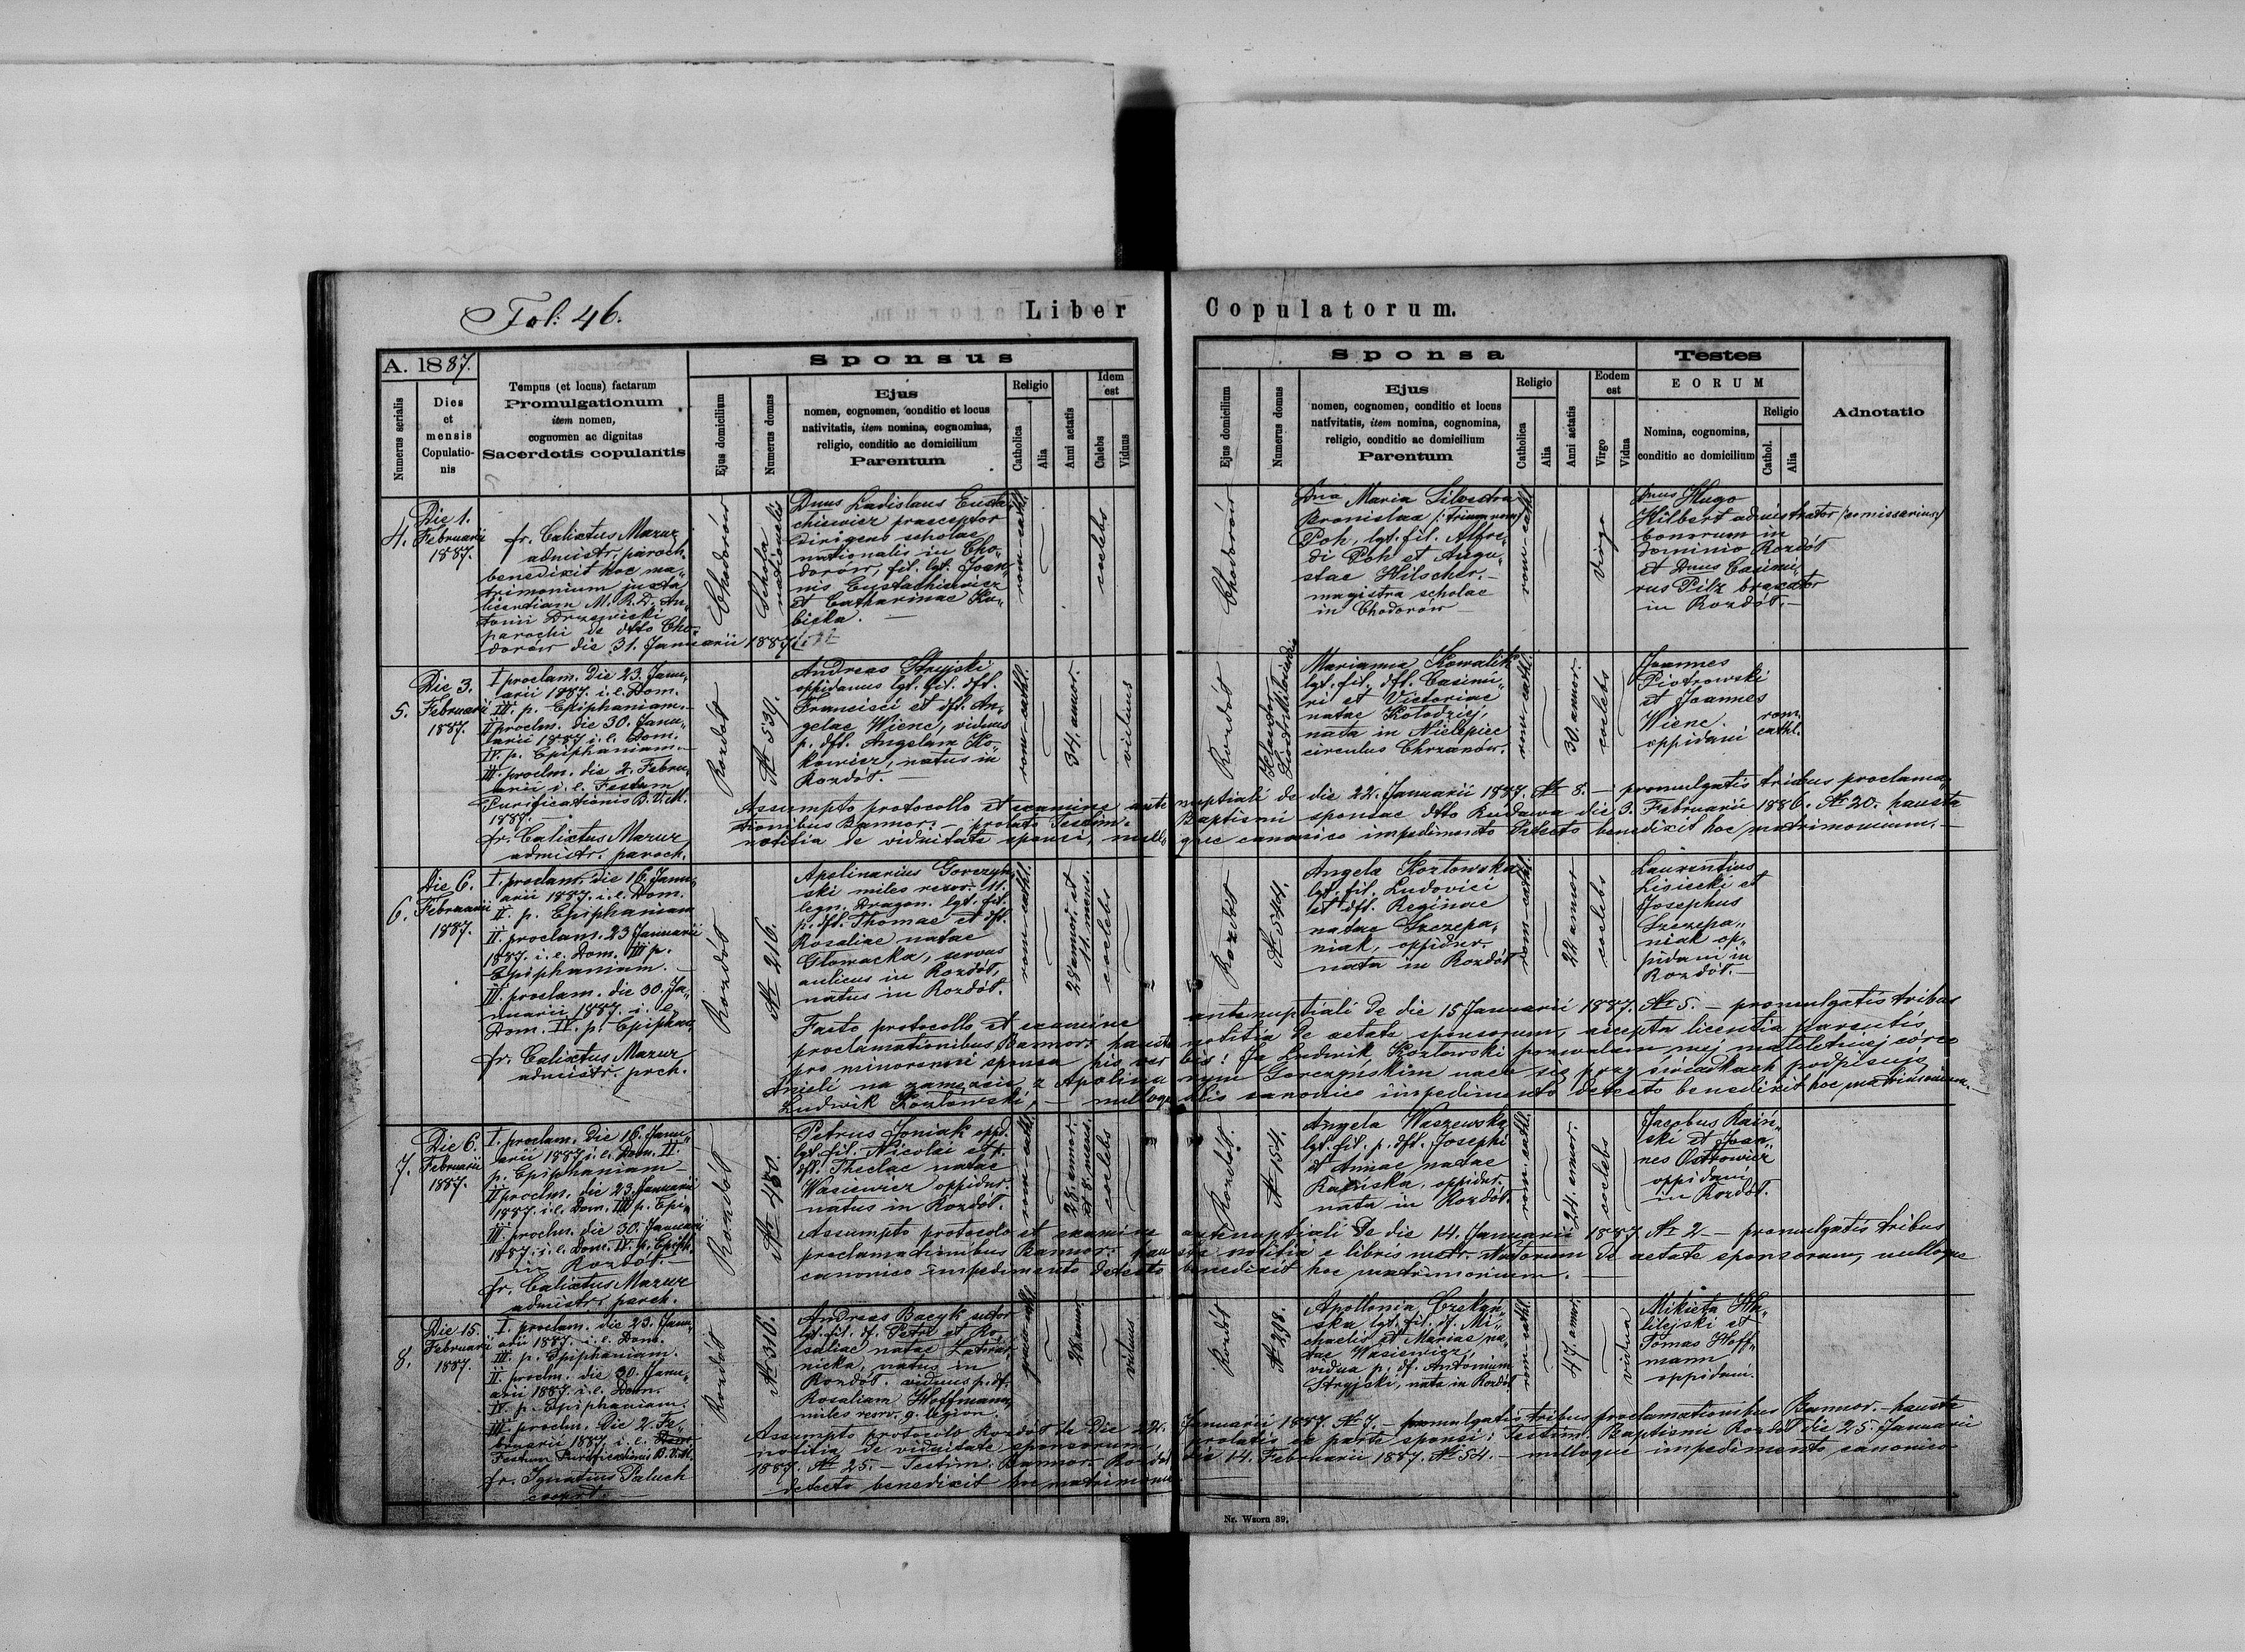 Fol: 46.
Liber Copulatorum.
A. 1887.
Numerus serialis
Dies et mensis Copulatio-nis
Tempus (et locus) factarum
Promulgationum
item nomen,
cognomen ac dignitas
Sacerdotis copulantis
Sponsus
Ejus domicilium
Numerus domus
Ejus
nomen, cognomen, conditio et locus
nativitatis, item nomina, cognomina,
religio, conditio ac domicilium
Parentum
Religio
Catholica
Alia
Anni aetatis
Idem est
Caelebs
Viduus
Sponsa
Ejus domicilium
Numerus domus
Ejus
nomen, cognomen, conditio et locus
nativitatis, item nomina, cognomina,
religio, conditio ac domicilium
Parentum
Religio
Catholica
Alia
Anni aetatis
Eodem est
Virgo
Vidua
Testes
EORUM
Nomina, cognomina,
conditio ac domicilium
Religio
Cathol.
Alia
Adnotatio
4.
Die 1.
Februarii
1887.
fr. Calixtus Mazur
admistr. paroch.
benedixit hoc ma„
trimonium juxta
licentiam M. R. D. An„
tonii Drzewicki
parochi de dtto Cho„
dorów die 31. Januarii 1887
Chodorów
Schola
nationalis
Dnus Ladislaus Eusta„
chiewicz praeceptor
dirigens scholae
nationalis in Cho„
dorów, fil. lgt. Joan„
nis Eustachiewicz
et Catharinae Ku„
bicka. —
rom-cathl.
coelebs
Chodorów
Dna Maria Silvestra
Bronislaa (: trium nom:)
Poh, lgt. fil. Alfre„
di Poh et Augu„
stae Hilscher. —
magistra scholae
in Chodorów —
rom-cathl.
Virgo
Dnus Hugo
Hilbert administrator (comissarius)
bonorum in
dominio Rozdół
et Dnus Casimi„
rus Pilz braxator
in Rozdół. —
5.
Die 3.
Februarii
1887.
I proclam. die 23. Janu„
arii 1887. i. e. Dom.
III. p. Epiphaniam. —
II proclm. die 30. Janu„
arii 1887 i. e. Dom.
IV. p. Epiphaniam. —
III. proclm. die 2. Febru„
arii i. e. Festum
Purificationis B. V. M.
1887. —
fr. Calixtus Mazur
admistr. paroch.
Rozdół
№ 539.
Andreas Stryjski
oppidanus lgt. fil. dft.
Francisci et dft. An„
gelae Wienc, viduus
p. dft. Angelam Ko„
kowicz, natus in
Rozdół. —
rom-cathl.
34. annor.
viduus
Rozdół
Marianna Kowalik
lgt. fil. dft. Casimi„
ri et Victoriae
natae Kołodziej,
nata in Nielepice
circulus Chrzanów.
rom-cathl.
30. annor.
coelebs
Joannes
Piotrowski
et Joannes
Wienc.
oppidani
rom.
cathl.
Assumpto protocollo et examine ante nuptiali de die 22. Januarii 1887. № 8. — promulgatis tribus proclama„
tionibus Bannor. — prolato Testim. Baptismi sponsae dtto Rudawa die 3. Februarii 1886. № 20. hausta
notitia de viduitate sponsi, nullo que canonico impedimento detecto benedixit hoc matrimonium. —
6.
Die 6.
Februarii
1887.
I. proclam. die 16. Janu„
arii 1887. i. e. Dom.
II. p. Epiphaniam
II. proclam. 23 Januarii
1887. i. e. Dom. III p.
Epiphaniam. —
III. proclam. die 30. Ja„
nuarii 1887. i. e.
Dom. IV. p. Epiphan.
fr. Calixtus Mazur
admistr. prch.
Rozdół
№ 216.
Apolinarius Gorczyń„
ski miles rezer. 11.
legn. Dragon. lgt. fil.
p. dft. Thomae et dft.
Rosaliae natae
Głowacka, servus
aulicus in Rozdół,
natus in Rozdół.
rom-cathl.
28 annor. et
11. mens.
coelebs
Rozdół
№ 544.
Angela Kozłowska
lgt. fil. Ludovici
et dft. Reginae
natae Szczepa„
niak, oppidnr.
nata in Rozdół
rom-cathl.
22 annor
coelebs
Laurentius
Lisiecki et
Josephus
Szczepa„
niak op„
pidani in
Rozdół. —
Facto protocollo et examine antenuptiali de die 15 Januarii 1887. № 5. — promulgatis tribus
proclamationibus Bannor. hausta notitia de aetate sponsorum, accepta licentia parentis
pro minorenni sponsa his ver bis: Ja Ludwik Kozłowski pozwalam mej małoletniej córce
Anieli na zamęzcie z Apolina rym Gorczyńskim na co się przy świadkach podpisuję
Ludwik Kozłowski, — nulloqu alio canonico impedimento detecto benedixit hoc matrimonium. —
7.
Die 6.
Februarii
1887.
I. proclam. die 16. Janu„
arii 1887. i. e. Dom. II.
p. Epiphaniam —
II proclm. die 23. Januarii
1887. i. e. Dom. III p. Epi„
III. proclm. die 30. Januarii
1887. i. e. Dom. IV. p. Epiph.
in Rozdół. —
fr. Calixtus Mazur
admistr. parch.
Rozdół
№ 480.
Petrus Joniak oppd.
lgt. fil. Nicolai et
dft. Theclae natae
Wasiewicz oppidnr.
natus in Rozdół.
rom-cathl.
28. annor.
et 8. mens.
coelebs
Rozdół.
№ 154.
Angela Waszewska
lgt. fil. p. dft. Josephi
et Annae natae
Raińska, oppidnr.
nata in Rozdół.
rom-cathl.
24. annor.
coelebs
Jacobus Raiń„
ski et Joan„
nes Ostrowicz
oppidani
in Rozdół.
Assumpto protocolo et examine antenuptiali de die 14. Januarii 1887 № 2 — promulgatis tribus
proclamationibus Bannor. hau sta notitia e libris metr. Natorum de aetate sponsorum, nulloque
canonico impedimento detecto benedixit hoc matrimonium. —
8.
Die 15.
Februarii
1887.
I. proclam. die 23. Janu„
arii 1887. i. e. Dom.
III. p. Epiphaniam.
II. proclm. die 30. Janu„
arii 1887. i. e. Dom.
IV p. Epiphaniam.
III. proclm. die 2. Fe„
bruarii 1887. i. e.
Festum Purificationis B. V. M.
fr. Ignatius Paluch
cooprt. —
Rozdół
№ 316.
Andreas Bacyk sutor
lgt. fil. df. Petri et Ro„
saliae natae
nicka, natus in
Rozdół. viduus p. df.
Rosaliam Hoffmann,
miles reserv. 9. legion.
28. annor.
viduus
Rozdół
№ 298.
Apollonia Czekań„
ska lgt. fil. df. Mi„
chaelis et Mariae na„
tae Wasiewicz,
vidua p. df. Antonium
Stryjski, nata in Rozdół
rom-cathl.
47 annor.
vidua
Mikieta Ha„
lilejski et
Tomas Hoff„
mann
oppidani.
Assumpto protocolo Rozdół de die 22. Januarii 1887. № 7. — promulgatis tribus proclamationibus Bannor. — hausta
notitia de viduitate sponsorum, prolatis ex parte sponsi: Testim. Baptismi Rozdół die 25. Januarii
1887. № 25. — Testim. Bannor. Rozdół die 14. Februarii 1887. № 54. — nulloque impedimento canonico
detecto benedixit hoc matrimonium
Nr. Wzoru 39.